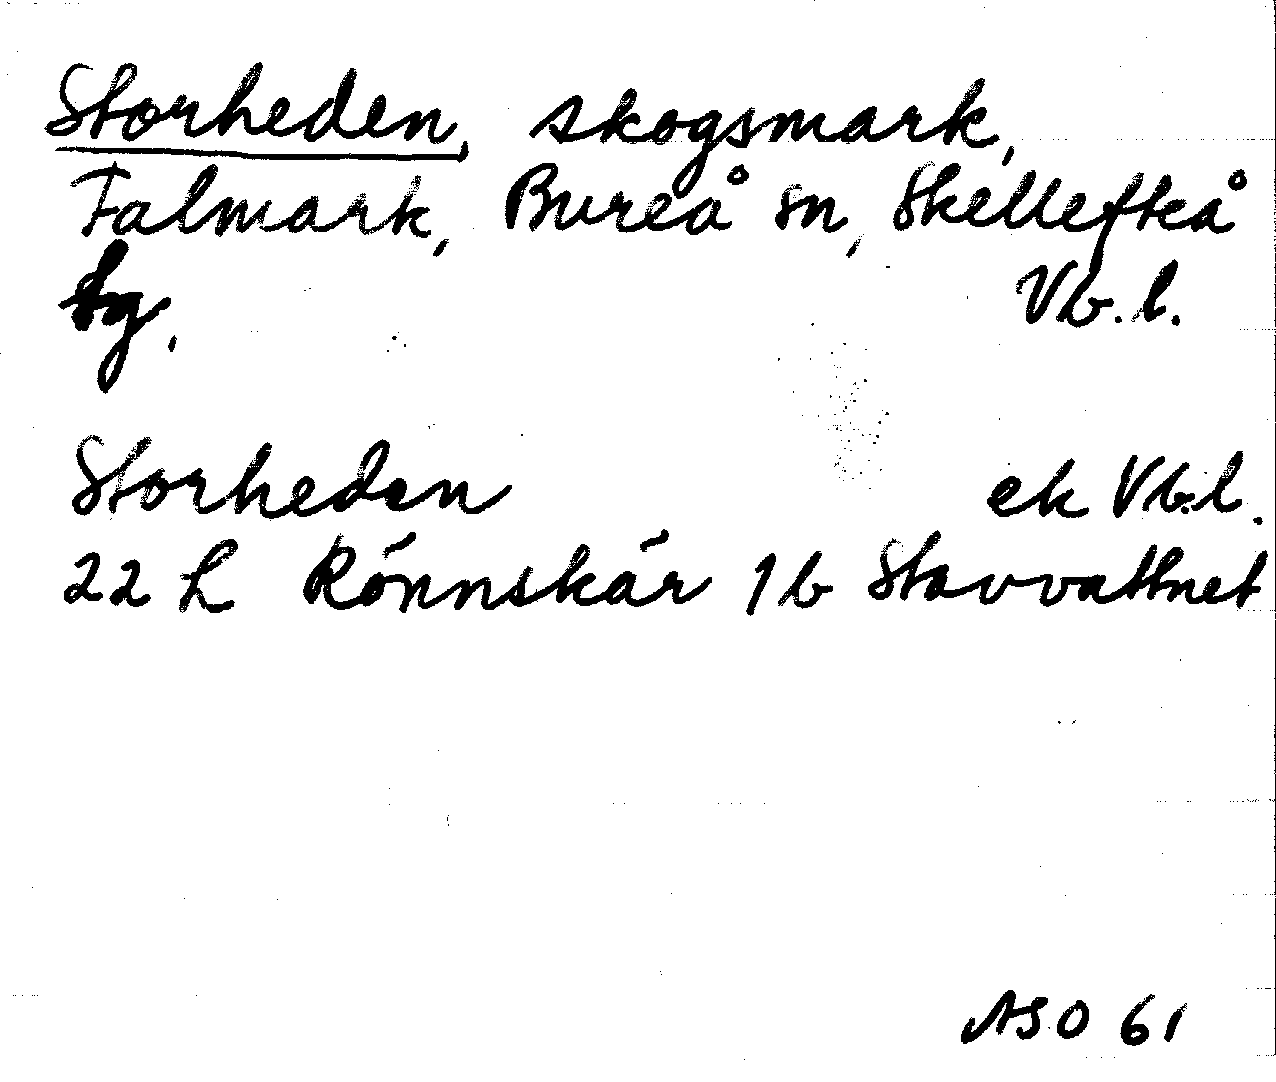 Storheden, skogsmark,
Falmark, Bureå sn, Skellefteå
tg. Vb.l.
Storheden ek Vb.l.
22 L Rönnskär 1b Stavvattnet
ASO 61